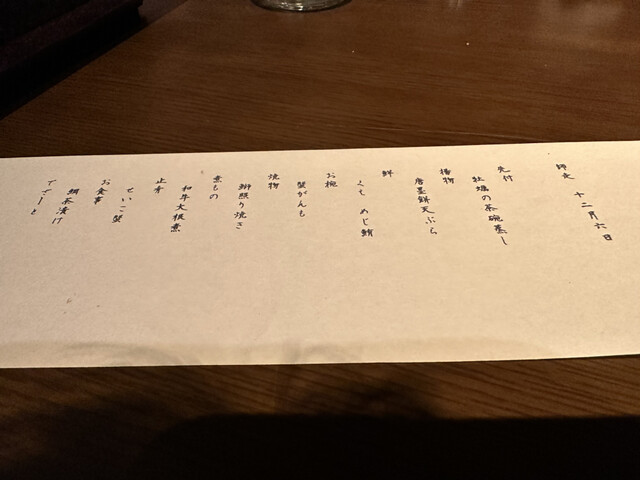 師走 十二月六日
先付
牡蠣の茶碗蒸し
揚物
唐墨餅天ぷら
鮮
くえ めじ鮪
お椀
蟹がんも
焼物
鰤照り焼き
煮もの
和牛大根煮
止肴
せいこ蟹
お食事
鯛茶漬け
でざーと